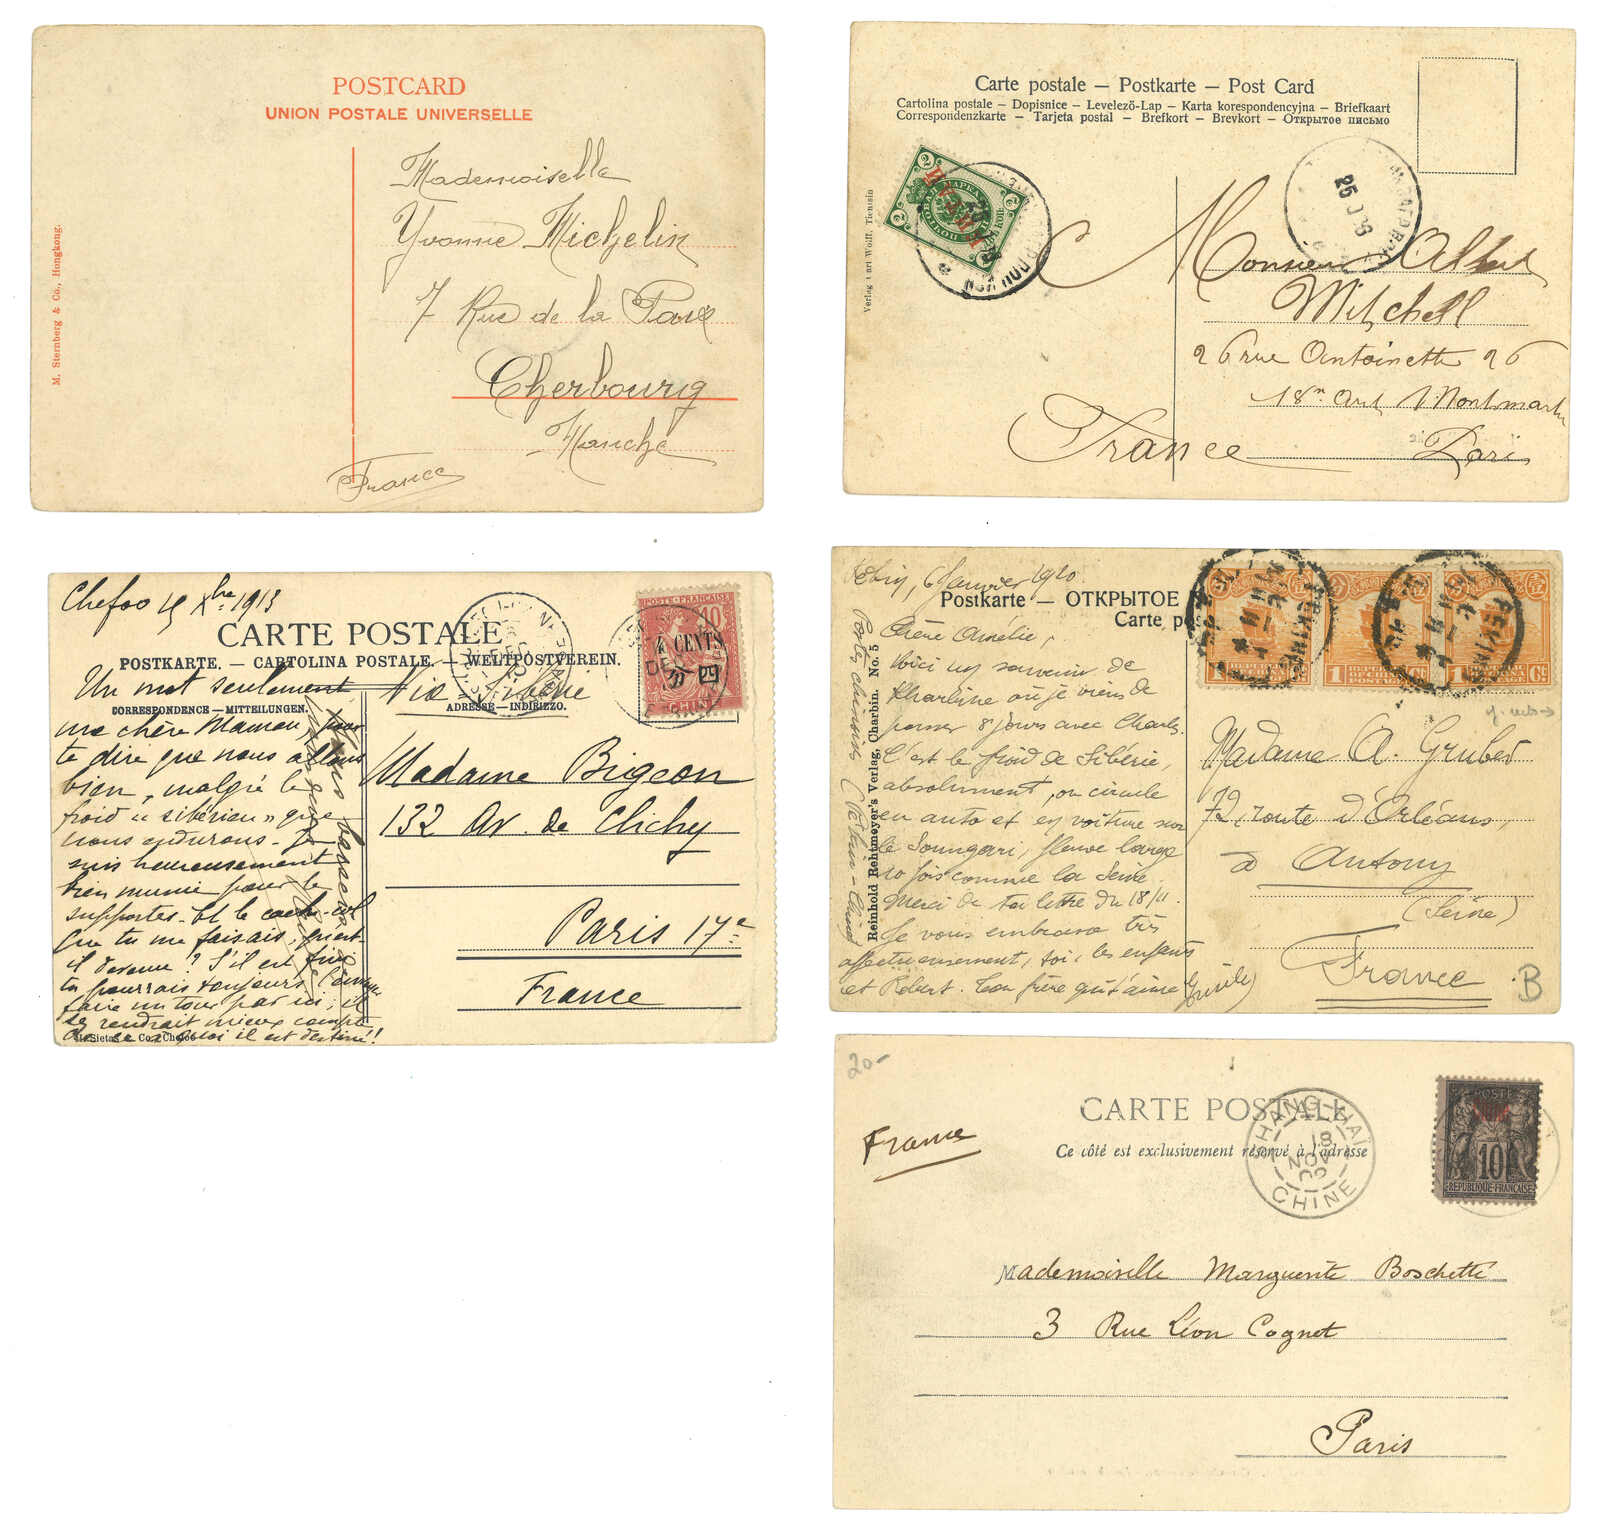 POSTCARD
UNION POSTALE UNIVERSELLE
M. Sternberg & Co., Hongkong.
Mademoiselle
Yvonne Michelin
7 Rue de la Paix
Cherbourg
Manche
France
Carte postale — Postkarte — Post Card
Cartolina postale — Dopisnice — Levelező-Lap — Karta korespondencyjna — Briefkaart
Correspondenzkarte — Tarjeta postal — Brefkort — Brevkort — Открытое письмо
Verlag Curt Wolff, Tientsin
2
ПОЧТОВАЯ МАРКА
КИТАЙ
Monsieur Albert
Mitchell
26 rue Antoinette 26
18m Art Montmartre
Paris
France
Chefoo 15 Xbre 1913
CARTE POSTALE
POSTKARTE. — CARTOLINA POSTALE. — WELTPOSTVEREIN.
CORRESPONDENCE — MITTEILUNGEN.
ADRESSE — INDIRIZZO.
Via Sibérie
POSTE FRANÇAISE
10
4 CENTS
CHINE
Un mot seulement
ma chère Maman, pour
te dire que nous allons
bien, malgré le
froid « sibérien » que
nous endurons. Je
suis heureusement
bien munie pour le
supporter. Et le cache-col
que tu me faisais, qu'est-
il devenu? S'il est fini
tu pourrais toujours l'envoyer
faire un tour par ici, il
se rendrait mieux compte
de ce à quoi il est destiné!!
Sietas & Co. Chefoo
Madame Bigeon
132 Av. de Clichy
Paris 17e
France
6 Janvier 1920
Postkarte — ОТКРЫТОЕ
Carte pos
Reinhold Rehtmeyer's Verlag, Charbin. No. 5
Chère Amélie,
Voici un souvenir de
Kharbine où je viens de
passer 8 jours avec Charles.
C'est le froid de Sibérie,
absolument, on circule
en auto et en voiture sur
le Soungari, fleuve large
10 fois comme la Seine.
Merci de ta lettre du 18/11.
Je vous embrasse très
affectueusement, toi, les enfants
et Robert. Ton frère qui t'aime
PEKING
1 REPUBLIC OF CHINA 1 Ct.
Madame A. Gruber
72, route d'Orléans,
à Antony
(Seine)
France
B
20-
France
CARTE POSTALE
Ce côté est exclusivement réservé à l'adresse
SHANG-HAI
18
NOV
02
CHINE
POSTE
10
REPUBLIQUE FRANÇAISE
Mademoiselle Marguerite Boschetti
3 Rue Léon Cognet
Paris